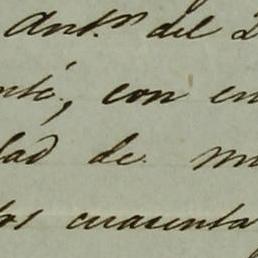 Ant.ⁿ del
nte, con en
dad de m
tos cuarenta